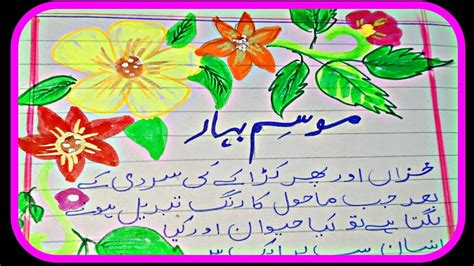 موسمِ بہار
خزاں اور پھر کڑاکے کی سردی کے
بعد جب ماحول کا رنگ تبدیل ہونے
لگتا ہے تو کیا حیوان اور کیا
انسان سب